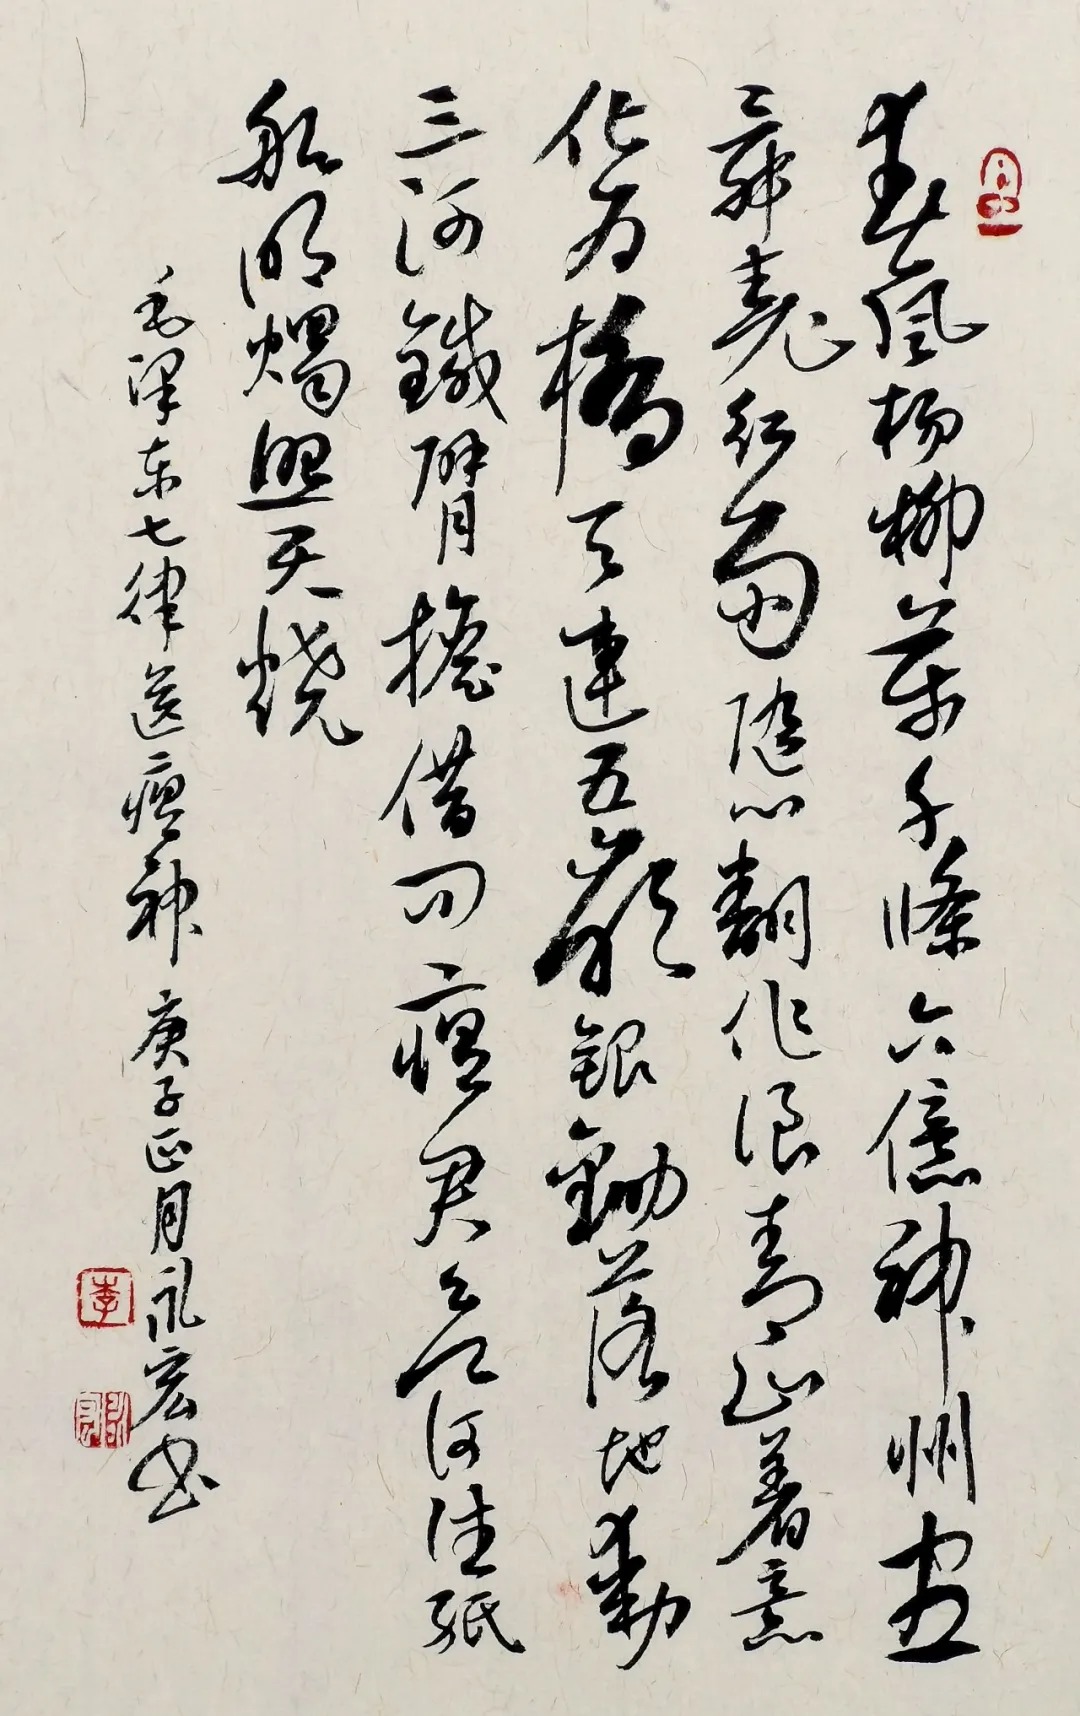 春風楊柳萬千條六億神州盡
舜堯紅雨隨心翻作浪青山着意
化為橋天連五嶺銀鋤落地動
三河鐵臂搖借問瘟君欲何往紙
船明燭照天燒
毛澤東七律送瘟神 庚子正月永宏書
李